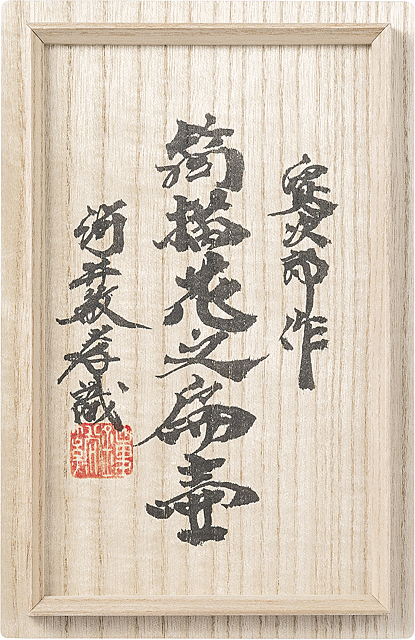 寛次郎作
筒描花之扁壷
河井敏孝識